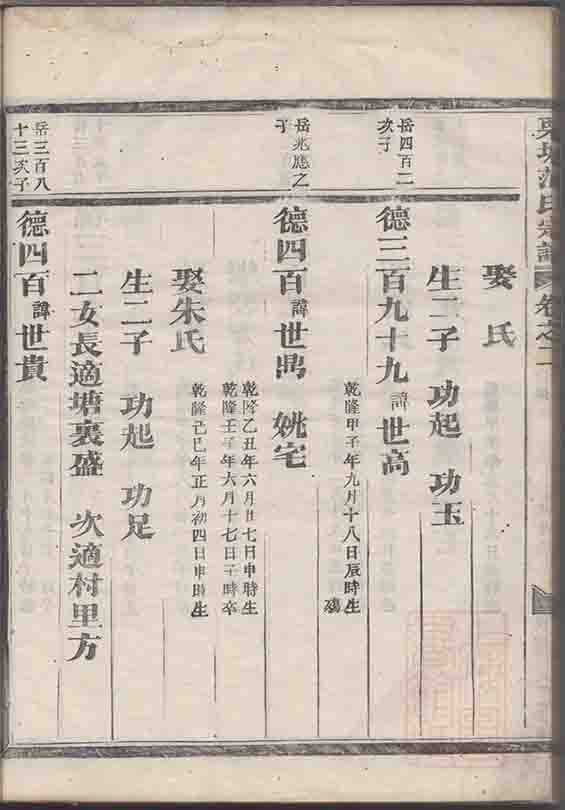 氏宗譜 卷之二
娶 氏
生二子 功起 功玉
岳四百二
次子
德三百九十九諱世高
乾隆甲子年九月十八日辰時生
殤
岳兆應之
子
德四百諱世鼎 姚宅
乾隆乙丑年六月廿七日申時生
乾隆壬子年六月十七日子時卒
娶朱氏
乾隆己巳年正月初四日申時生
生二子 功起 功足
二女長適塘裏盛 次適村里方
岳三百八
十三次子
德四百諱世貴